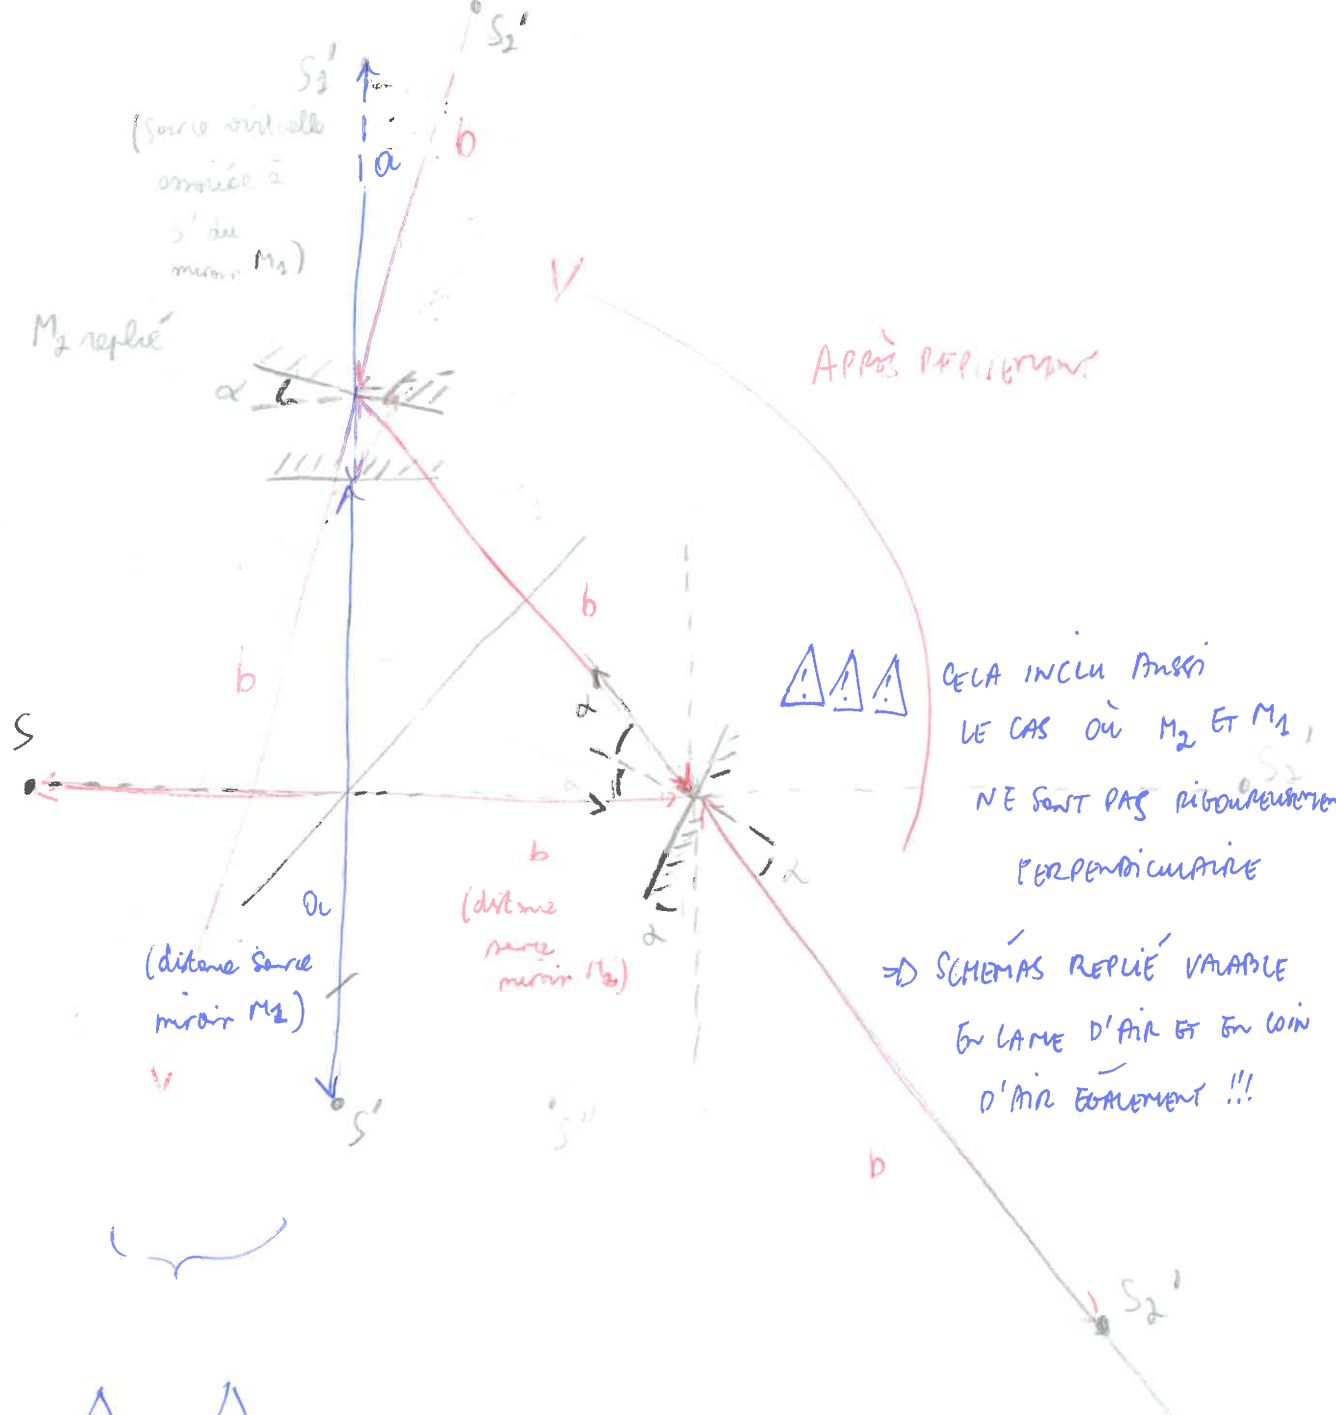 S2'
S1'
(source virtuelle
associée à
S' du
miroir M1)
a
b
M2 replié
α
V
APRÈS REPLIEMENT
b
b
α
S
CELA INCLU AUSSI
LE CAS OÙ M2 ET M1
NE SONT PAS RIGOUREUSEMEN
PERPENDICULAIRE
S2'
b
(distance
source
miroir M2)
α
α
a
(distance source
miroir M1)
V
=> SCHÉMAS REPLIÉ VALABLE
EN LAME D'AIR ET EN COIN
D'AIR ÉGALEMENT !!!
S'
S''
b
S2'